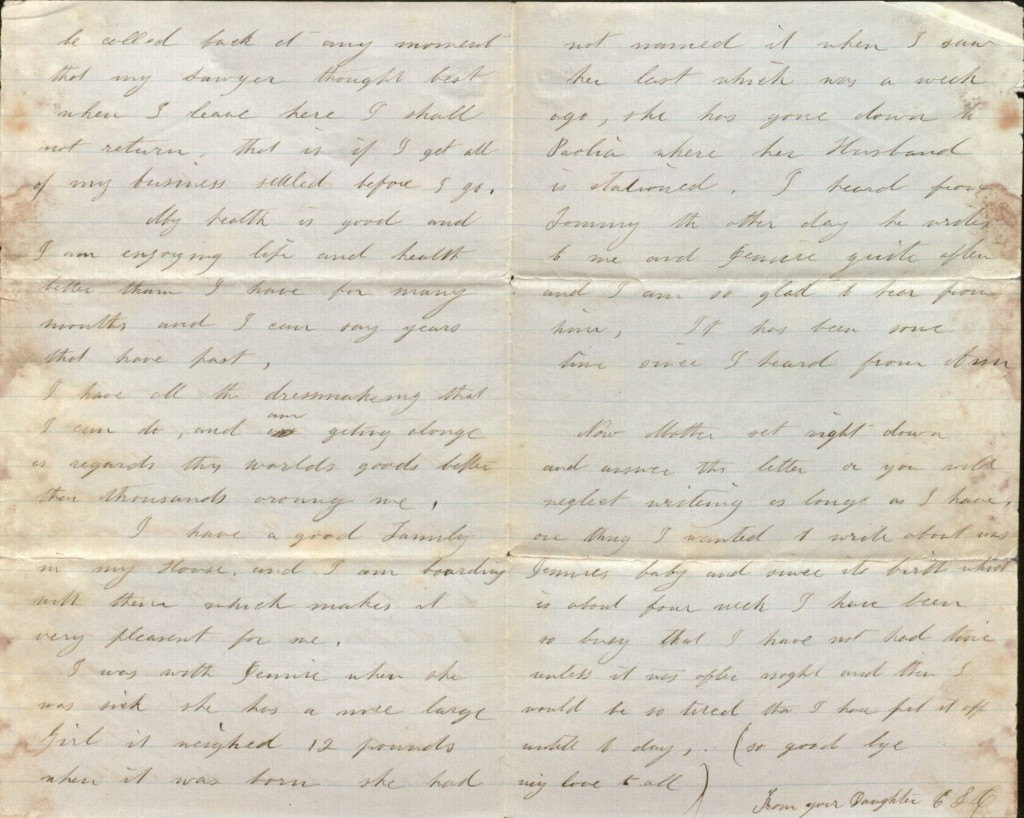 be called back at any moment
that my Lawyer thought best
when I leave here I shall
not return, that is if I get all
of my business settled before I go.
My health is good and
I am enjoying life and health
better tham I have for many
months and I can say years
that have past,
I have all the dressmakeing that
am
I can do, and geting alonge
as regards thy worlds goods better
than thousands aroung me,
I have a good Family
in my House. and I am boarding
with them which makes it
very pleasent for me.
I was with Jennie when she
was sick she has a nice large
Girl it weighed 12 pounds
when it was born she had
not named it when I saw
her last which was a week
ago, she has gone down to
Paolia where her Husband
is stationed. I heard from
Tommy th other day he writes
to me and Jennie quite often
and I am so glad to hear from
him, It has been some
time since I heard from Ann
Now Mother set right down
and answer this letter or you will
neglect writeing as longe as I have,
one thing I wanted to write about was
Jennies baby and since its birth which
is about four week I have been
so busy that I have not had time
unless it was after night and then I
would be so tired tha I have put it off
untill to day, . (so good bye
my love to all)
From your Daughter E